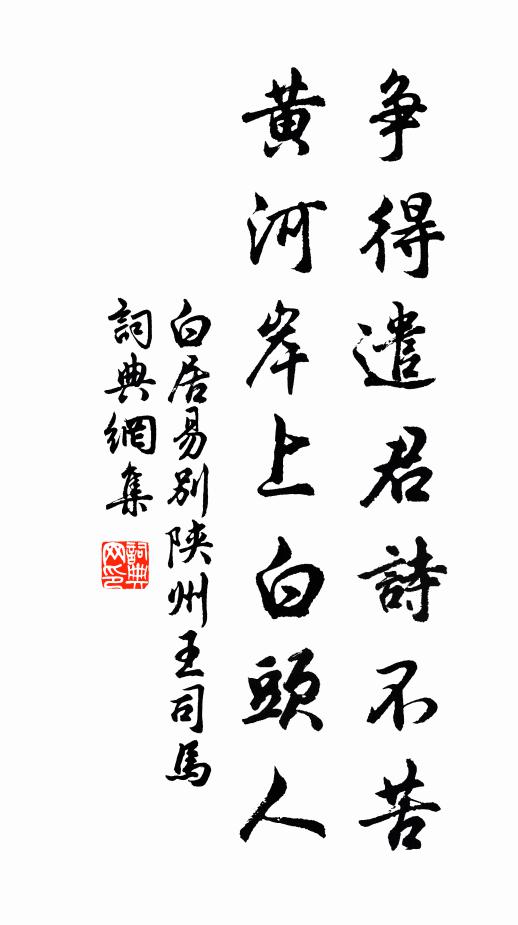 争得遣君詩不苦
黄河岸上白頭人
白居易别陕州王司馬
詞典網集
詞典
网印